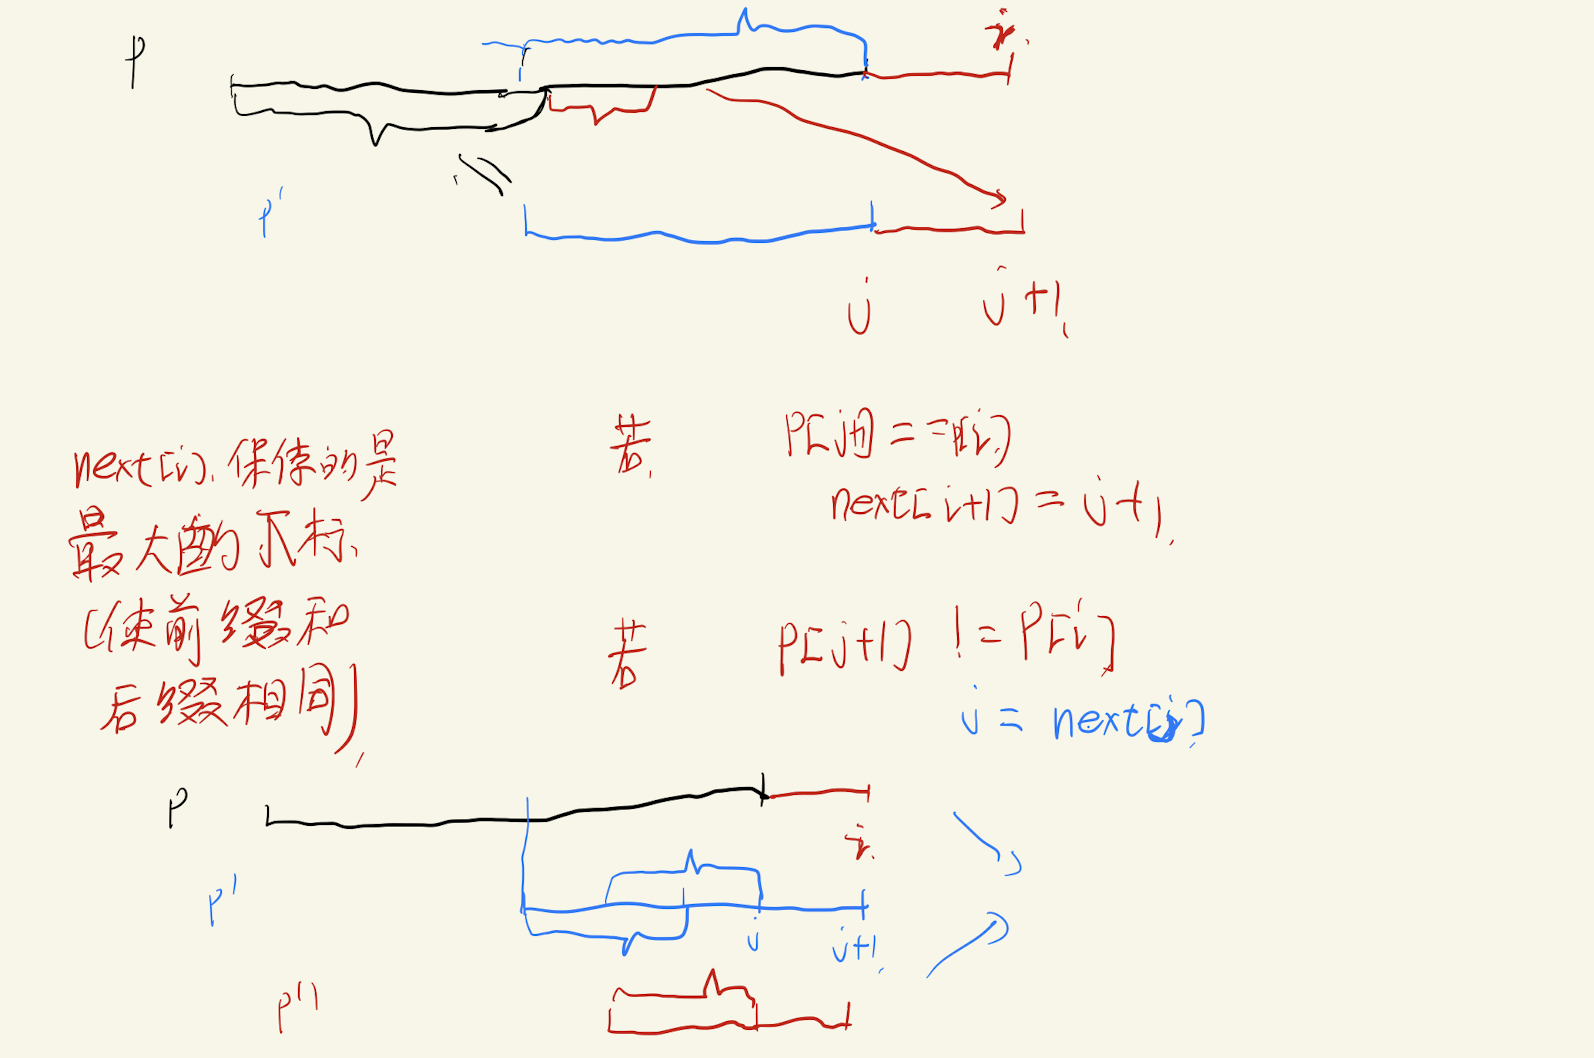 P
i
P'
j
j+1
next[i]保存的是
最大的下标
(使前缀和
后缀相同)
若
P[j+1]==P[i]
next[i+1]=j+1
若
P[j+1] != P[i]
j = next[j]
P
i
P'
j
j+1
P''